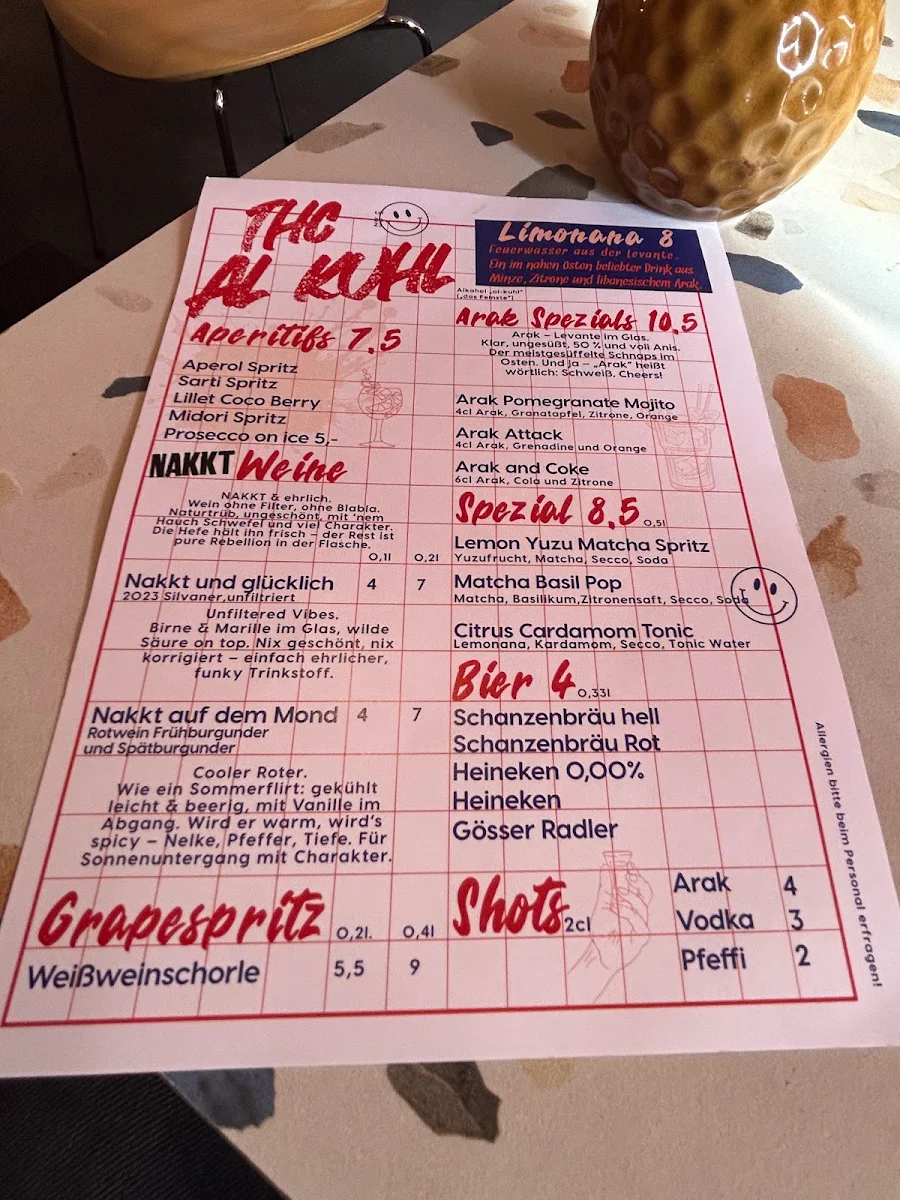 THC
AL KUHL
Aperitifs 7.5
Aperol Spritz
Sarti Spritz
Lillet Coco Berry
Midori Spritz
Prosecco on ice 5,-
NAKKT Weine
NAKKT & ehrlich.
Wein ohne Filter, ohne Blabla.
Naturtrüb, ungeschönt, mit 'nem
Hauch Schwefel und viel Charakter.
Die Hefe hält ihn frisch – der Rest ist
pure Rebellion in der Flasche.
0,1l 0,2l
Nakkt und glücklich 4 7
2023 Silvaner,unfiltriert
Unfiltered Vibes.
Birne & Marille im Glas, wilde
Säure on top. Nix geschönt, nix
korrigiert – einfach ehrlicher,
funky Trinkstoff.
Nakkt auf dem Mond 4 7
Rotwein Frühburgunder
und Spätburgunder
Cooler Roter.
Wie ein Sommerflirt: gekühlt
leicht & beerig, mit Vanille im
Abgang. Wird er warm, wird's
spicy – Nelke, Pfeffer, Tiefe. Für
Sonnenuntergang mit Charakter.
Grapespritz 0,2l. 0,4l
Weißweinschorle 5,5 9
Limonana 8
Feuerwasser aus der Levante.
Ein im nahen Osten beliebter Drink aus
Minze, Zitrone und libanesischem Arak.
Alkohol „al-kuhl"
(„das Feinste")
Arak Spezials 10,5
Arak – Levante im Glas.
Klar, ungesüßt, 50 % und voll Anis.
Der meistgesüffelte Schnaps im
Osten. Und ja – „Arak" heißt
wörtlich: Schweiß. Cheers!
Arak Pomegranate Mojito
4cl Arak, Granatapfel, Zitrone, Orange
Arak Attack
4cl Arak, Grenadine und Orange
Arak and Coke
6cl Arak, Cola und Zitrone
Spezial 8,5 0,5l
Lemon Yuzu Matcha Spritz
Yuzufrucht, Matcha, Secco, Soda
Matcha Basil Pop
Matcha, Basilikum,Zitronensaft, Secco, Soda
Citrus Cardamom Tonic
Lemonana, Kardamom, Secco, Tonic Water
Bier 4 0,33l
Schanzenbräu hell
Schanzenbräu Rot
Heineken 0,00%
Heineken
Gösser Radler
Shots 2cl
Arak 4
Vodka 3
Pfeffi 2
Allergien bitte beim Personal erfragen!